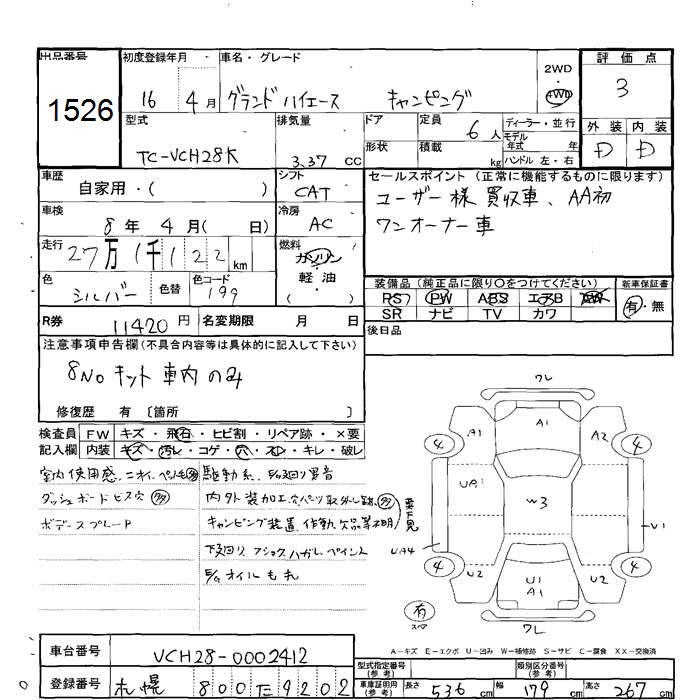 出品番号 1526
初度登録年月 車名・グレード 2WD 評価点
16年 4月 グランドハイエース キャンピング 4WD 3
型式 排気量 ドア 定員 6人 ディーラー・並行 外装 内装
TC-VCH28K 3.37 CC 形状 積載 kg モデル年式 年式 D D
ハンドル 左・右
車歴 自家用・( ) シフト CAT セールスポイント (正常に機能するものに限ります)
車検 8年 4月( 日) 冷房 AC ユーザー様買収車、AA初
走行 27万1千122km 燃料 ガソリン・軽油・( ) ワンオーナー車
色 シルバー 色替 色コード 199 装備品 (純正品に限り○をつけてください) 新車保証書
PS PW ABS エアB AW 有・無
SR ナビ TV カワ
R券 11420円 名変期限 月 日 後日品
注意事項申告欄 (不具合内容等は具体的に記入して下さい)
8No キット 車内のみ
修復歴 有 〔箇所 〕
検査員 FW キズ・飛石・ヒビ割・リペア跡・×要
記入欄 内装 キズ・汚レ・コゲ・穴・スレ・キレ・破レ
室内使用感、ニオイ、 駆動系、
ダッシュボードビス穴 多 内外装加工、穴 パーツ取外し跡、多
ボデースプレーP キャンピング装置、作動、欠品等不明
下廻り
オイルもれ
要下見
ワレ
A1
4 A1 A2 4
UA1 W3
V1
UA4
4 U2 U1 U2 4
A1
有 スペア ワレ
A―キズ E―エクボ U―凹み W―補修跡 S―サビ C―腐食 XX―交換済
車台番号 VCH28-0002412
型式指定番号 (参考) 類別区分番号 (参考)
登録番号 札幌 800 た 9202
車庫証明用 (参考) 長さ 536 cm 幅 179 cm 高さ 267 cm